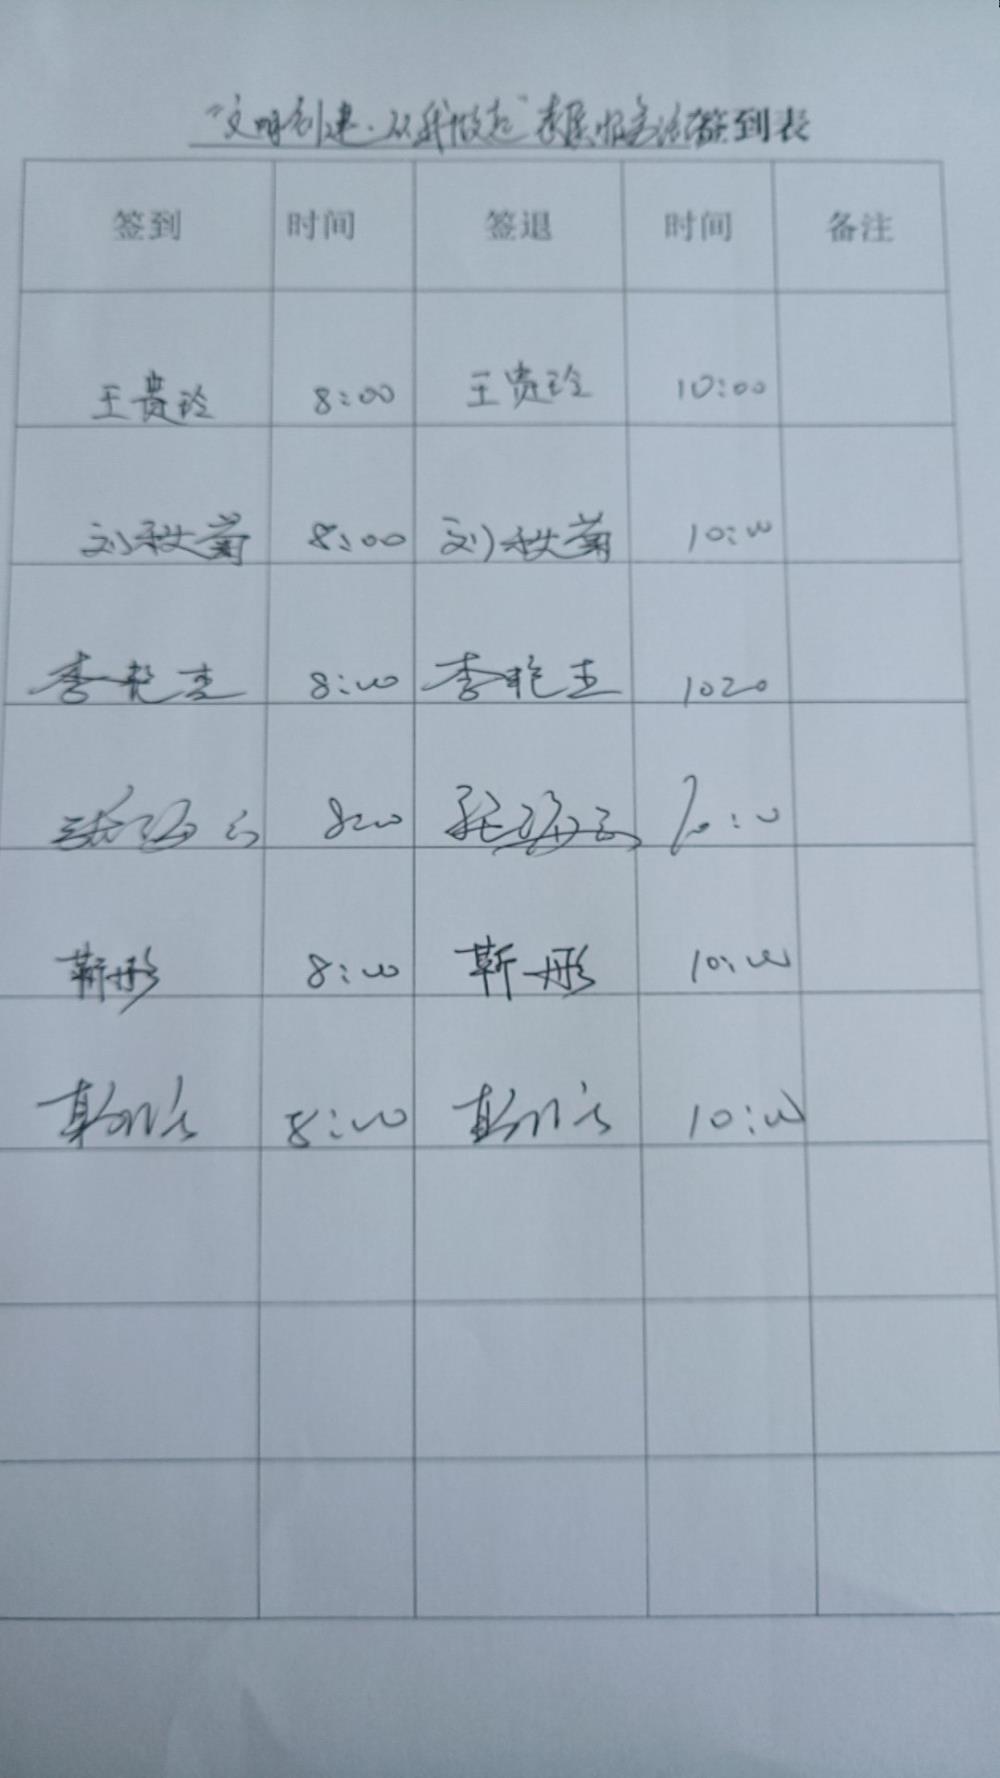 "文明创建·从我做起"志愿服务活动签到表
签到 时间 签退 时间 备注
王贵玲 8:00 王贵玲 10:00
刘秋菊 8:00 刘秋菊 10:00
李艳杰 8:00 李艳杰 1020
800 10:00
靳彤 8:00 靳彤 10:00
8:00 10:00